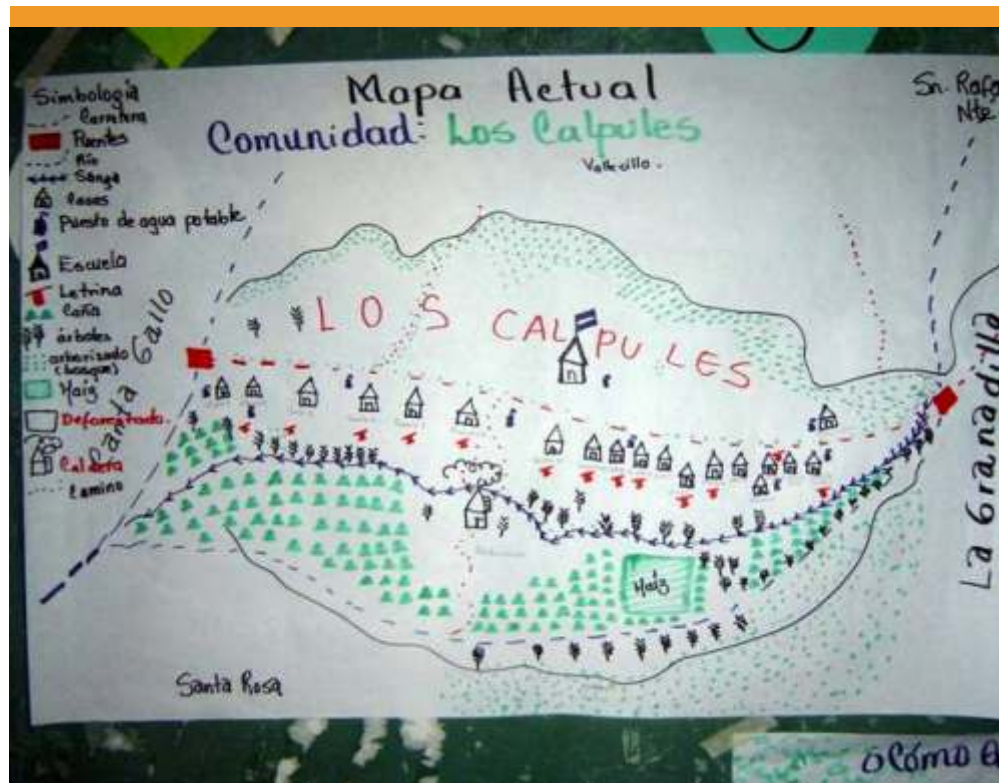 Mapa Actual
Comunidad: Los Calpules
Vallecillo.
Sn. Rafa
Nte.
Simbología
Carretera
Puentes
Río
Sanja
Casas
Puesto de agua potable
Escuela
Letrina
Caña
árboles
arborizado
(bosque)
Maíz
Deforestado
Caldera
Camino
Santa Gallo
LOS CALPULES
Maíz
La Granadilla
Santa Rosa
¿Cómo e